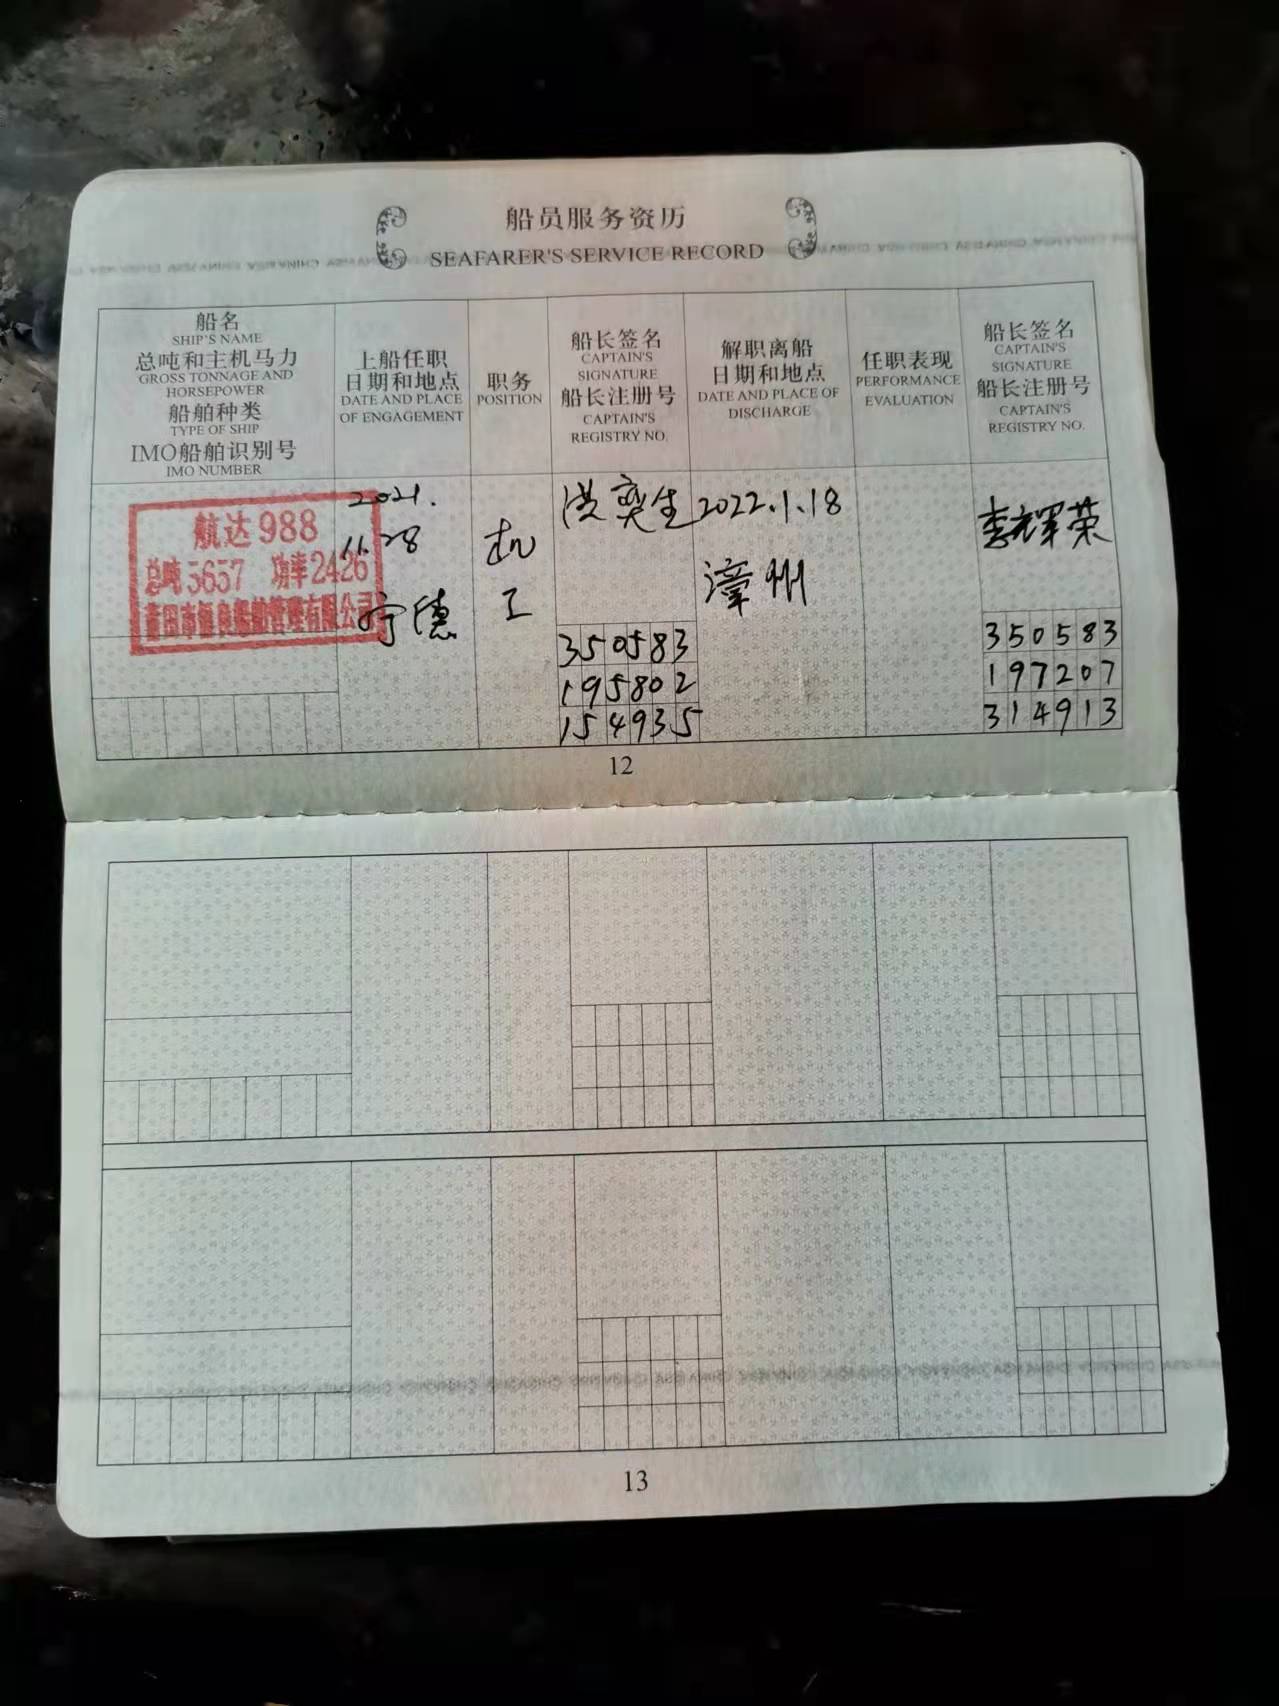 船员服务资历
SEAFARER'S SERVICE RECORD
船名
SHIP'S NAME
总吨和主机马力
GROSS TONNAGE AND
HORSEPOWER
船舶种类
TYPE OF SHIP
IMO船舶识别号
IMO NUMBER
上船任职
日期和地点
DATE AND PLACE
OF ENGAGEMENT
职务
POSITION
船长签名
CAPTAIN'S
SIGNATURE
船长注册号
CAPTAIN'S
REGISTRY NO.
解职离船
日期和地点
DATE AND PLACE OF
DISCHARGE
任职表现
PERFORMANCE
EVALUATION
船长签名
CAPTAIN'S
SIGNATURE
船长注册号
CAPTAIN'S
REGISTRY NO.
航达988
总吨5657 功率2426
莆田市恒良船舶管理有限公司
2021.
11.28
宁德
机
工
洪奕生
350583
195802
154935
2022.1.18
漳州
李辉荣
350583
197207
314913
12
13